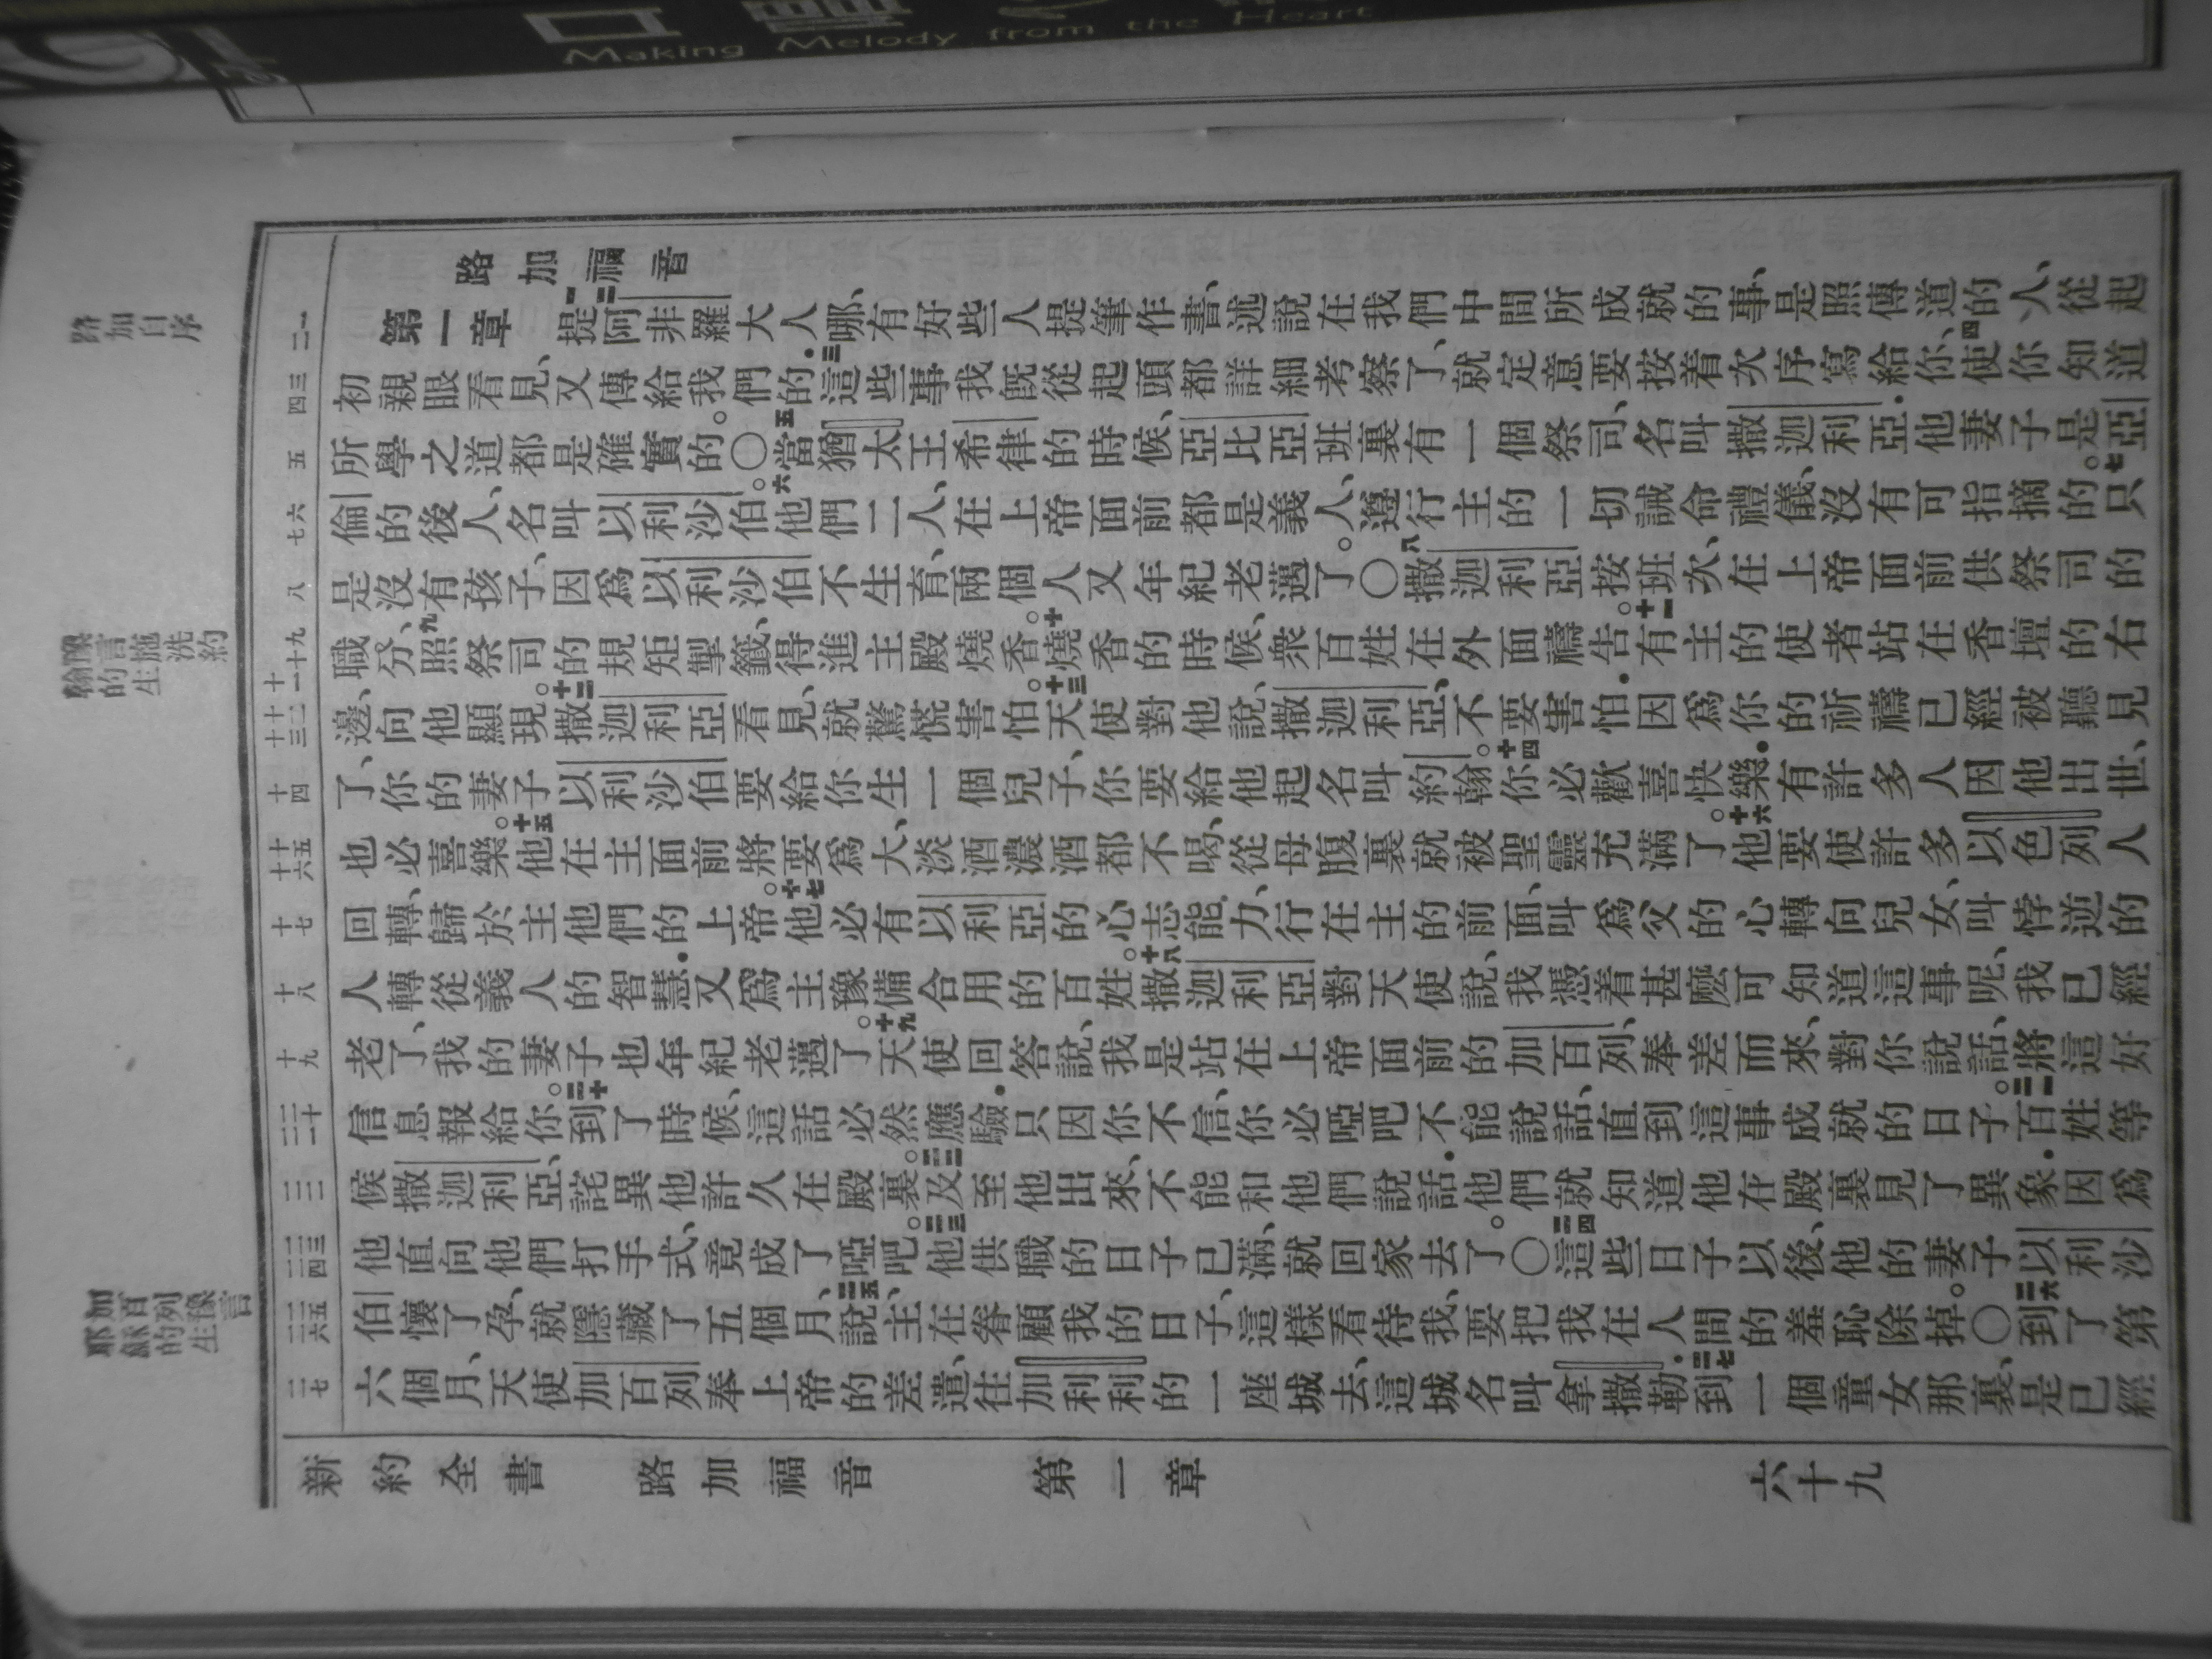 Making Melody from the Heart
路加福音
第一章 一二提阿非羅大人哪、有好些人提筆作書、述說在我們中間所成就的事、是照傳道的人、從起
初親眼看見、又傳給我們的．三這些事我旣從起頭都詳細考察了、就定意要按着次序寫給你、四使你知道
所學之道都是確實的。〇五當猶太王希律的時候、亞比亞班裏有一個祭司、名叫撒迦利亞．他妻子是亞
倫的後人、名叫以利沙伯。六他們二人、在上帝面前都是義人、遵行主的一切誡命禮儀、沒有可指摘的。七只
是沒有孩子、因爲以利沙伯不生育、兩個人又年紀老邁了。〇八撒迦利亞按班次、在上帝面前供祭司的
職分、九照祭司的規矩掣籤、得進主殿燒香。十燒香的時候、衆百姓在外面禱告。十一有主的使者站在香壇的右
邊、向他顯現。十二撒迦利亞看見、就驚慌害怕。十三天使對他說、撒迦利亞、不要害怕．因爲你的祈禱已經被聽見
了、你的妻子以利沙伯要給你生一個兒子、你要給他起名叫約翰。十四你必歡喜快樂．有許多人因他出世、
也必喜樂。十五他在主面前將要爲大、淡酒濃酒都不喝、從母腹裏就被聖靈充滿了。十六他要使許多以色列人
回轉、歸於主他們的上帝。十七他必有以利亞的心志能力、行在主的前面、叫爲父的心轉向兒女、叫悖逆的
人轉從義人的智慧．又爲主豫備合用的百姓。十八撒迦利亞對天使說、我憑着甚麼可知道這事呢、我已經
老了、我的妻子也年紀老邁了。十九天使回答說、我是站在上帝面前的加百列、奉差而來、對你說話、將這好
信息報給你。二十到了時候、這話必然應驗．只因你不信、你必啞吧不能說話、直到這事成就的日子。二一百姓等
候撒迦利亞、詫異他許久在殿裏。二二及至他出來、不能和他們說話．他們就知道他在殿裏見了異象．因爲
他直向他們打手式、竟成了啞吧。二三他供職的日子已滿、就回家去了。〇二四這些日子以後、他的妻子以利沙
伯懷了孕、就隱藏了五個月、二五說、主在眷顧我的日子、這樣看待我、要把我在人間的羞恥除掉。〇二六到了第
六個月、天使加百列奉上帝的差遣、往加利利的一座城去、這城名叫拿撒勒．二七到一個童女那裏、是已經
路加自序
豫言施洗約
翰的生
加百列豫言
耶穌的生
一 二
三 四
五
六 七
八
九 十 十一
十二 十三
十四
十五 十六
十七
十八
十九
二十 二一
二二
二三 二四
二五 二六
二七
新約全書 路加福音 第一章 六十九